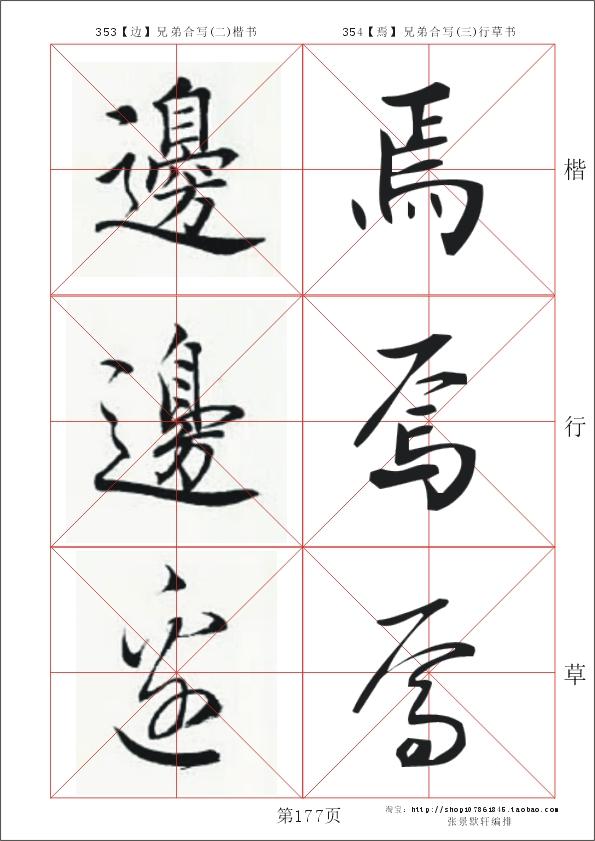 353【边】兄弟合写(二)楷书 354【焉】兄弟合写(三)行草书
邊 焉 楷
邊 焉 行
邊 焉 草
第177页
淘宝: http://shop107861845.taobao.com
张景默轩编排